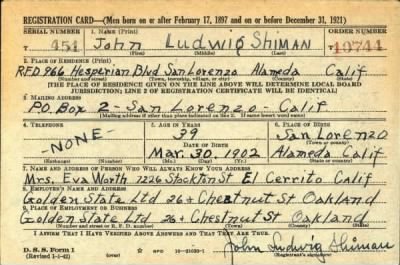 REGISTRATION CARD—(Men born on or after February 17, 1897 and on or before December 31, 1921)
SERIAL NUMBER 1. NAME (Print) ORDER NUMBER
T 451 John Ludwig Shiman 10744
(First) (Middle) (Last)
2. PLACE OF RESIDENCE (Print)
R.F.D. 866 Hesperian Blvd San Lorenzo Alameda Calif
(Number and street) (Town, township, village, or city) (County) (State)
[THE PLACE OF RESIDENCE GIVEN ON THE LINE ABOVE WILL DETERMINE LOCAL BOARD
JURISDICTION; LINE 2 OF REGISTRATION CERTIFICATE WILL BE IDENTICAL]
3. MAILING ADDRESS
P.O. Box 2 - San Lorenzo - Calif
(Mailing address if other than place indicated on line 2. If same insert word same)
4. TELEPHONE 5. AGE IN YEARS 6. PLACE OF BIRTH
-NONE- 39 San Lorenzo
DATE OF BIRTH (Town or county)
Mar. 30 1902 Alameda Calif
(Exchange) (Number) (Mo.) (Day) (Yr.) (State or country)
7. NAME AND ADDRESS OF PERSON WHO WILL ALWAYS KNOW YOUR ADDRESS
Mrs. Eva Worth 7226 Stockton St El Cerrito Calif
8. EMPLOYER'S NAME AND ADDRESS
Golden State Ltd 26 + Chestnut St Oakland
9. PLACE OF EMPLOYMENT OR BUSINESS
Golden State Ltd 26 + Chestnut St Oakland
(Number and street or R. F. D. number) (Town) (County) (State)
I AFFIRM THAT I HAVE VERIFIED ABOVE ANSWERS AND THAT THEY ARE TRUE.
D. S. S. Form 1
(Revised 1-1-42) (over) John Ludwig Shiman